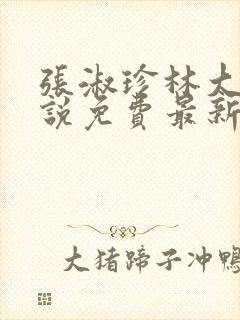 張淑珍林大
說免費最新
大猪蹄子冲鴨